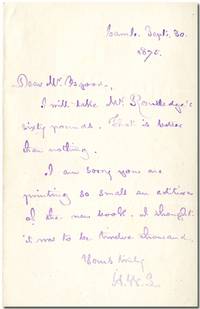 Camb. Sept. 30.
1875.
Dear Mr. Osgood,
I will take Mr. Routledge's
sixty pounds. That is better
than nothing.
I am sorry you are
printing so small an edition
of the new book. I thought
it was to be twelve thousand.
Yours truly
H. W. L.